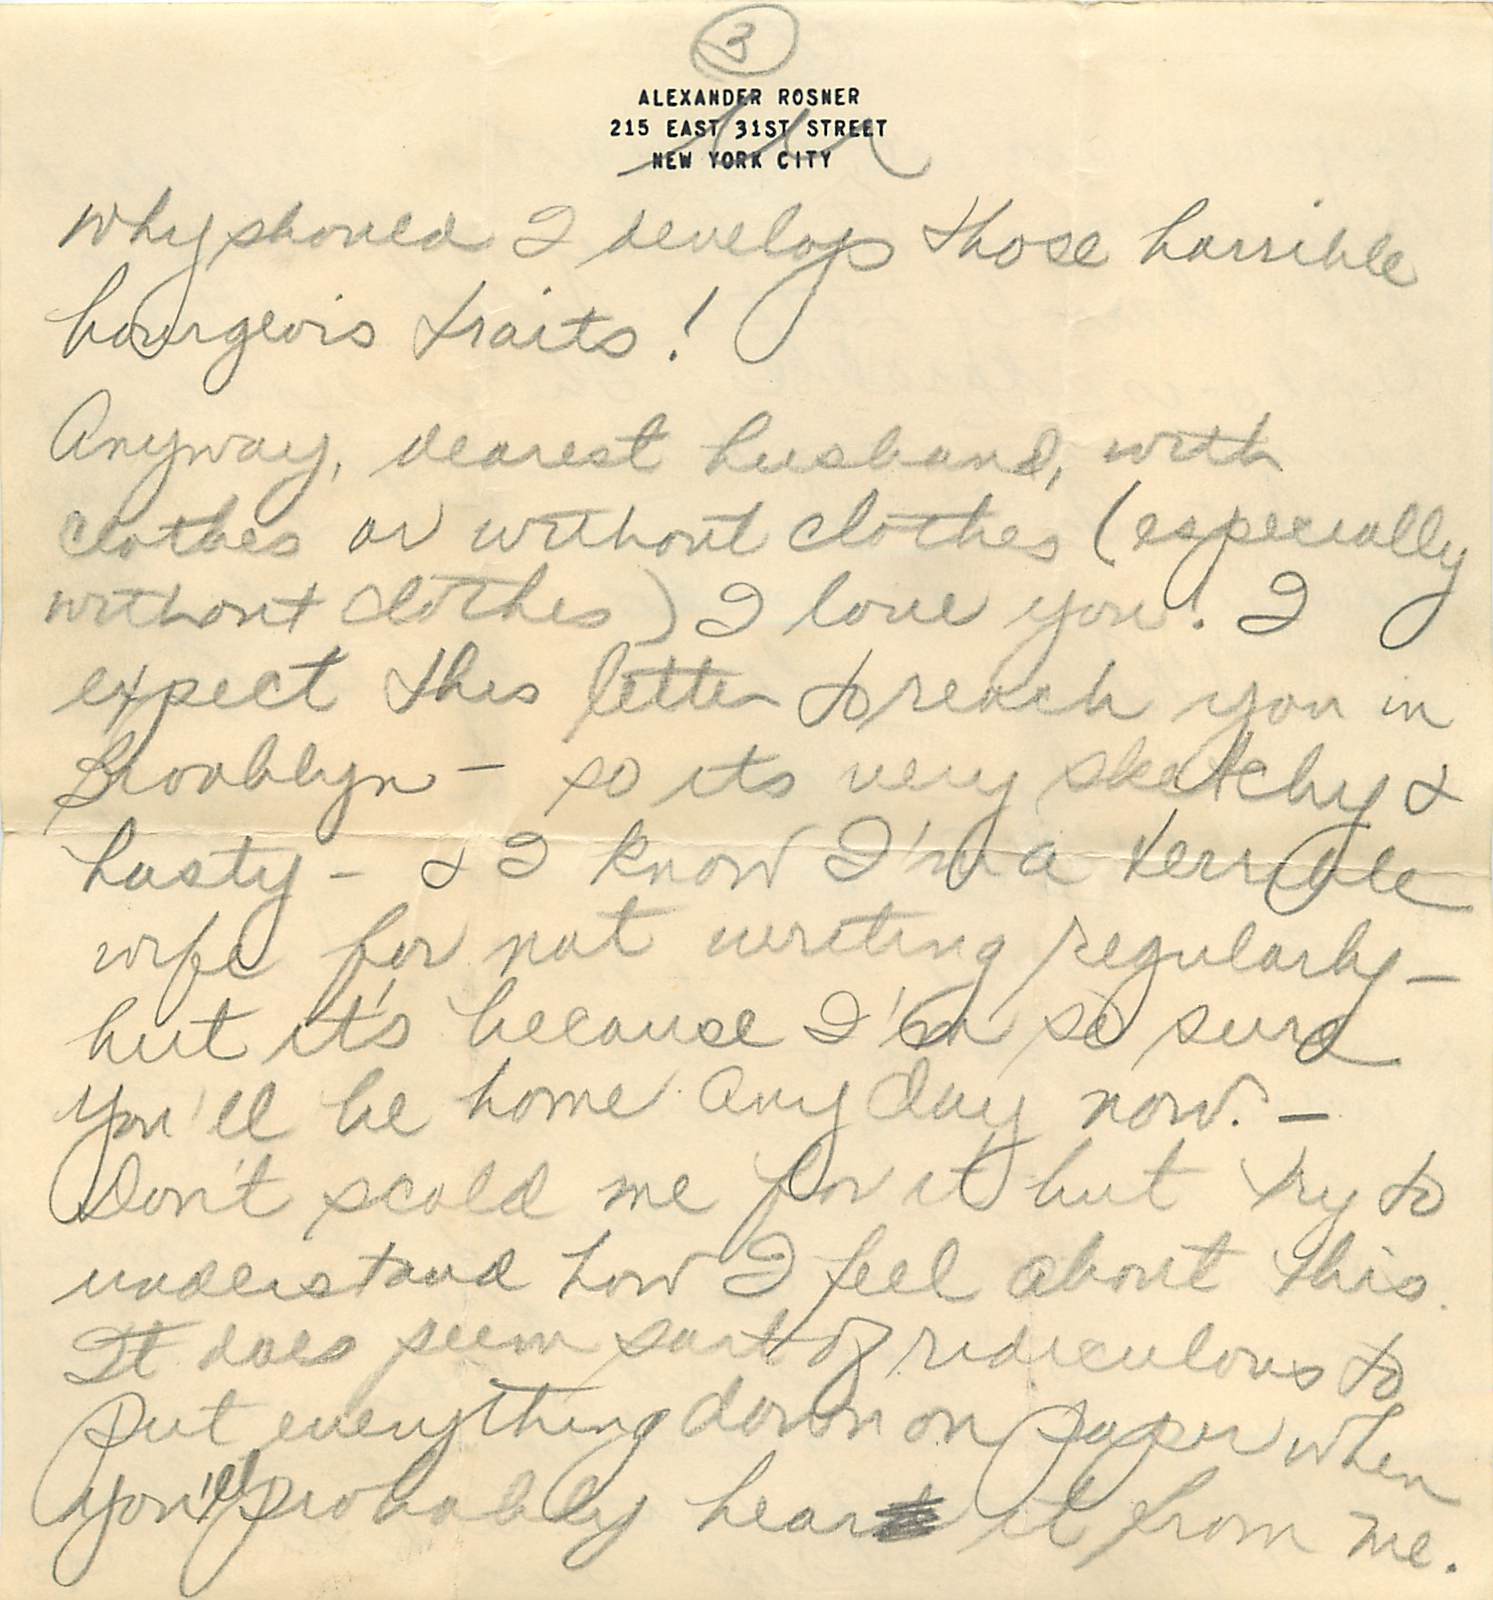 3
ALEXANDER ROSNER
215 EAST 31ST STREET
NEW YORK CITY
Why should I develop those horrible
bourgeois traits!
Anyway, dearest husband, with
clothes or without clothes (especially
without clothes) I love you! I
expect this letter to reach you in
Brooklyn - so its very sketchy &
hasty - & I know I'm a terrible
wife for not writing regularly -
but it's because I'm so sure
you'll be home any day now. -
Don't scold me for it but try to
understand how I feel about this.
It does seem sort of ridiculous to
put everything down on paper when
you'll probably hear it from me.